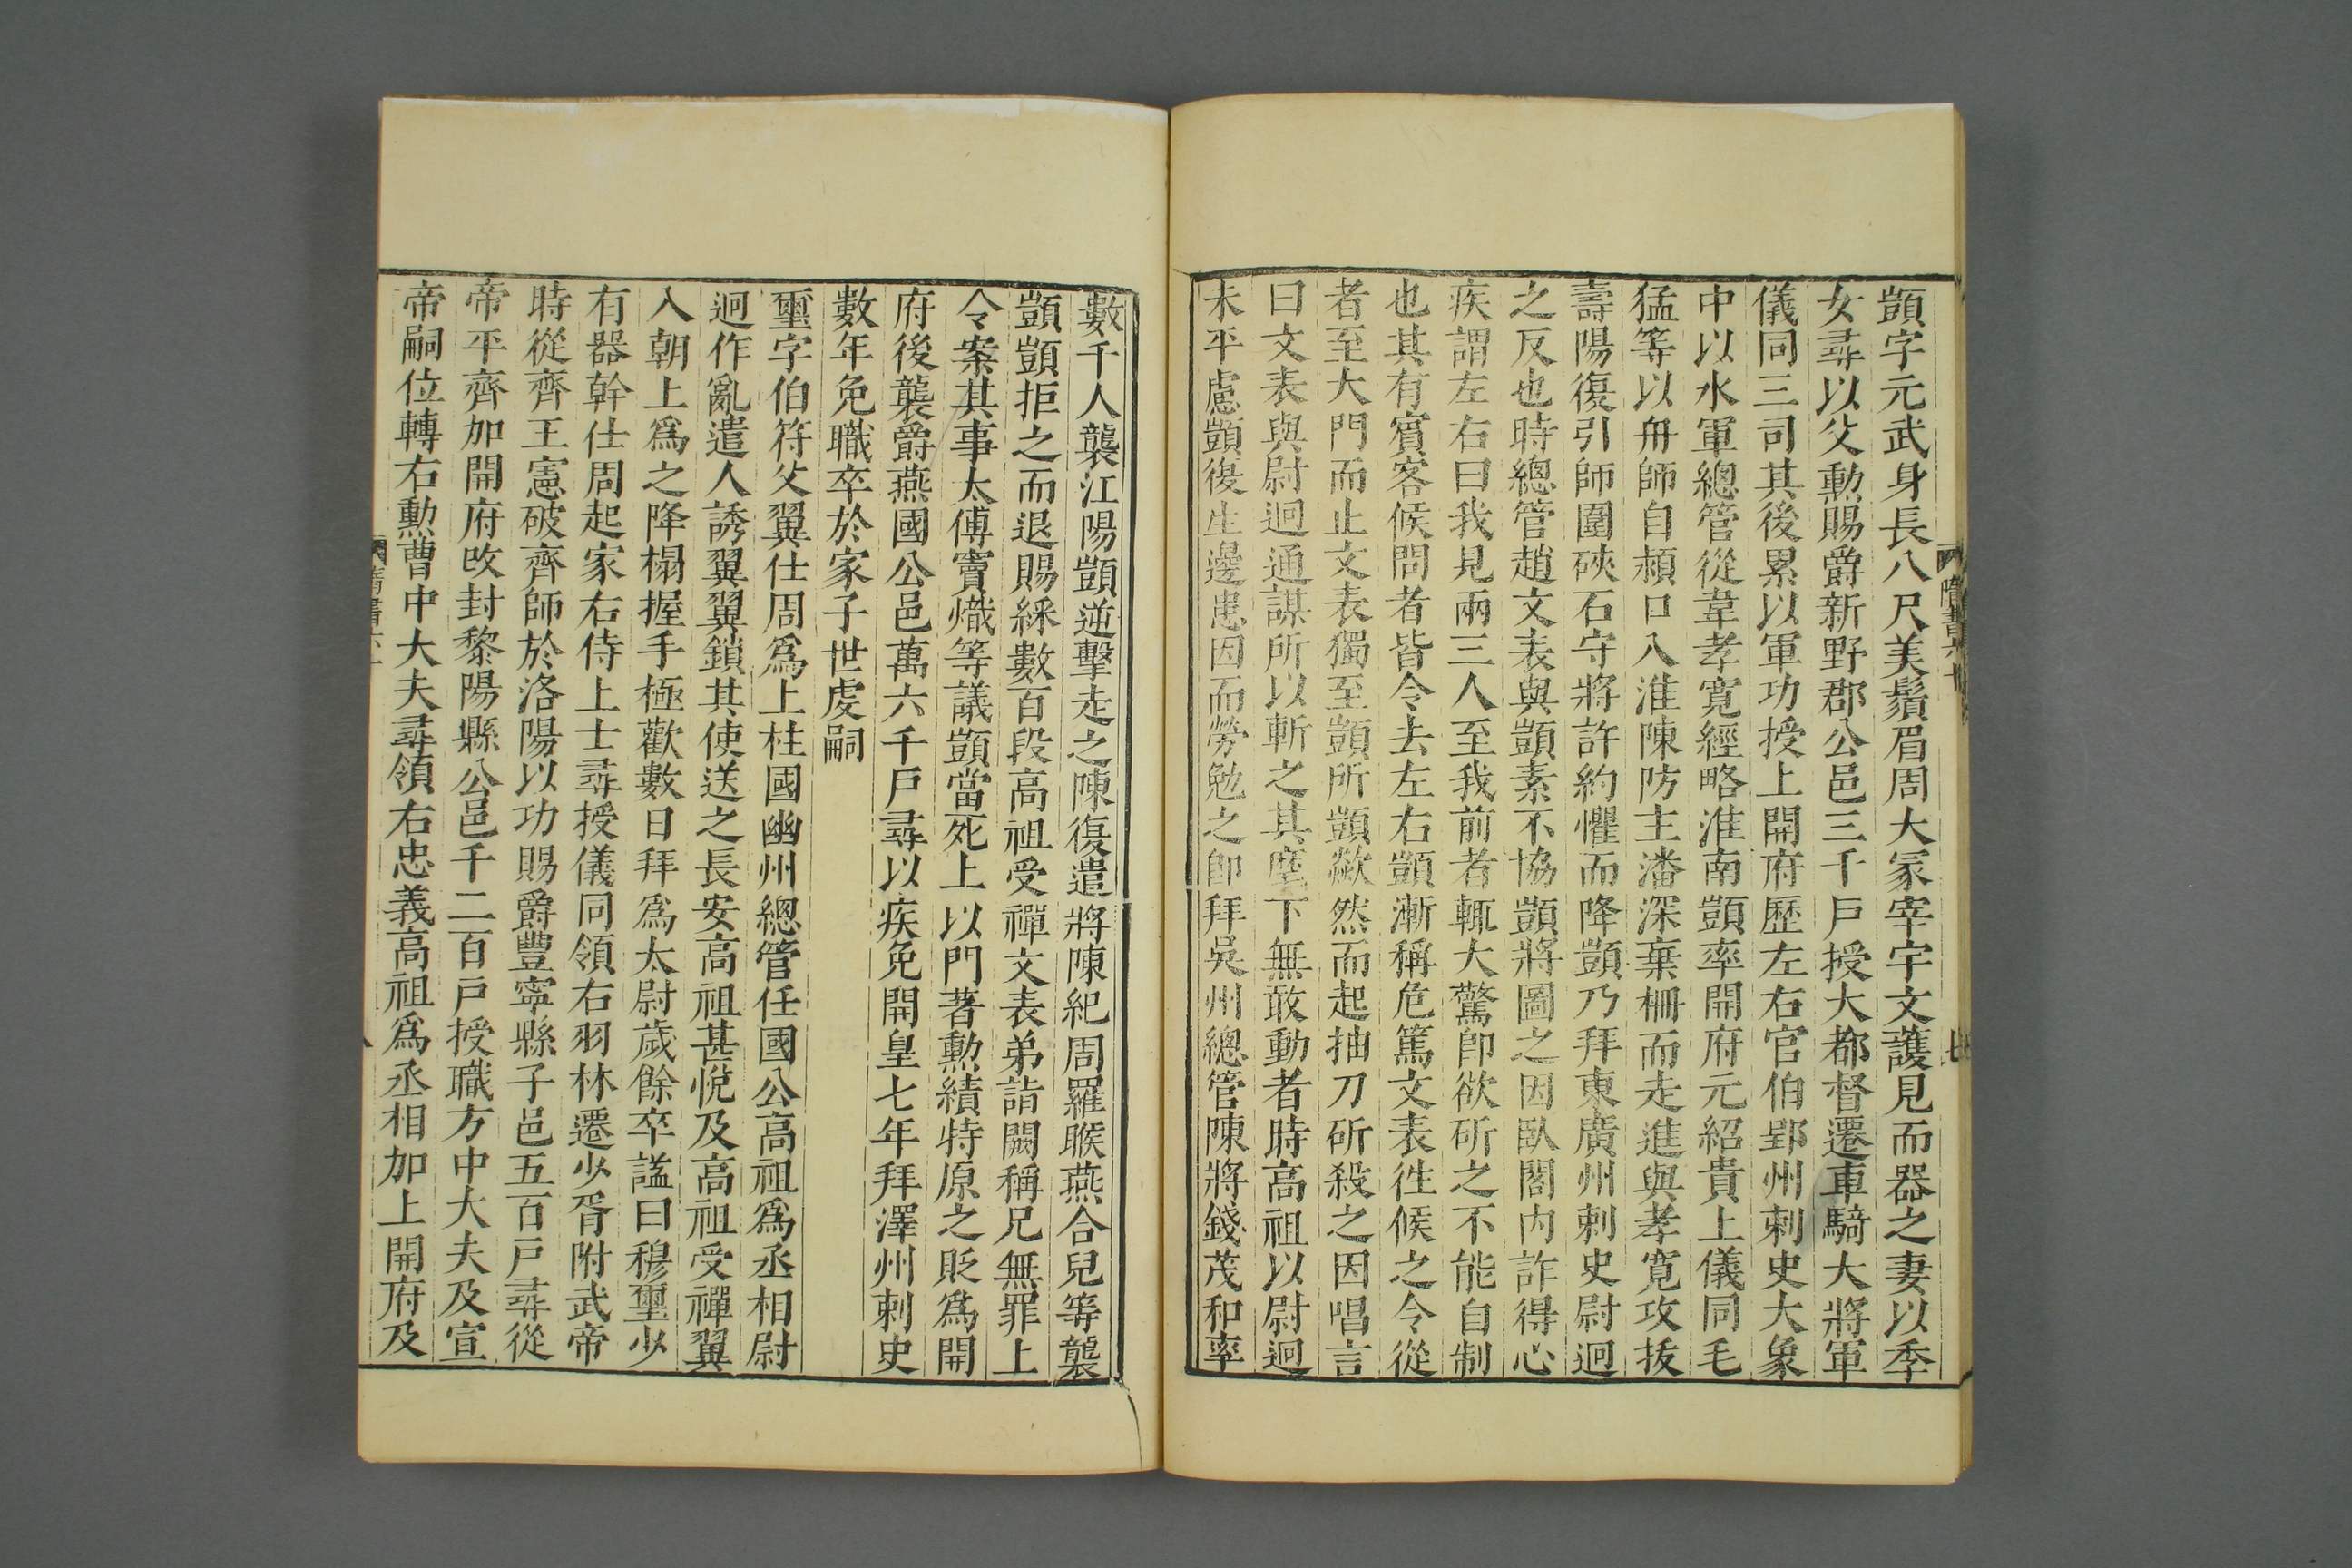 顗字元武身長八尺美鬚眉周大冢宰宇文護見而器之妻以季
女尋以父勳賜爵新野郡公邑三千戸授大都督遷車騎大將軍
儀同三司其後累以軍功授上開府歷左右官伯郢州刺史大象
中以水軍總管從韋孝寬經略淮南顗率開府元紹貴上儀同毛
猛等以舟師自潁口入淮陳防主潘深棄柵而走進與孝寛攻抜
壽陽復引師圍硤石守將許約懼而降顗乃拜東廣州刺史尉迥
之反也時總管趙文表與顗素不協顗將圖之因臥閣内詐得心
疾謂左右曰我見兩三人至我前者輒大驚卽欲斫之不能自制
也其有賓客候問者皆令去左右顗漸稱危篤文表徃候之令從
者至大門而止文表獨至顗所顗歘然而起抽刀斫殺之因唱言
曰文表與尉迥通謀所以斬之其麾下無敢動者時高祖以尉迥
未平慮顗復生邊患因而勞勉之卽拜吳州總管陳將錢茂和率
數千人襲江陽顗逆擊走之陳復遣將陳紀周羅睺燕合兒等襲
顗顗拒之而退賜綵數百段高祖受禪文表弟詣闕稱兄無罪上
令案其事太傅竇熾等議顗當死上以門著勳績特原之貶爲開
府後襲爵燕國公邑萬六千戸尋以疾免開皇七年拜澤州刺史
數年免職卒於家子世虔嗣
璽字伯符父翼仕周爲上柱國幽州總管任國公高祖爲丞相尉
迥作亂遣人誘翼翼鎖其使送之長安高祖甚悅及高祖受禪翼
入朝上爲之降榻握手極歡數日拜爲太尉歲餘卒謚曰穆璽少
有器幹仕周起家右侍上士尋授儀同領右羽林遷少胥附武帝
時從齊王憲破齊師於洛陽以功賜爵豐寧縣子邑五百戸尋從
帝平齊加開府改封黎陽縣公邑千二百戸授職方中大夫及宣
帝嗣位轉右勳曹中大夫尋領右忠義高祖爲丞相加上開府及